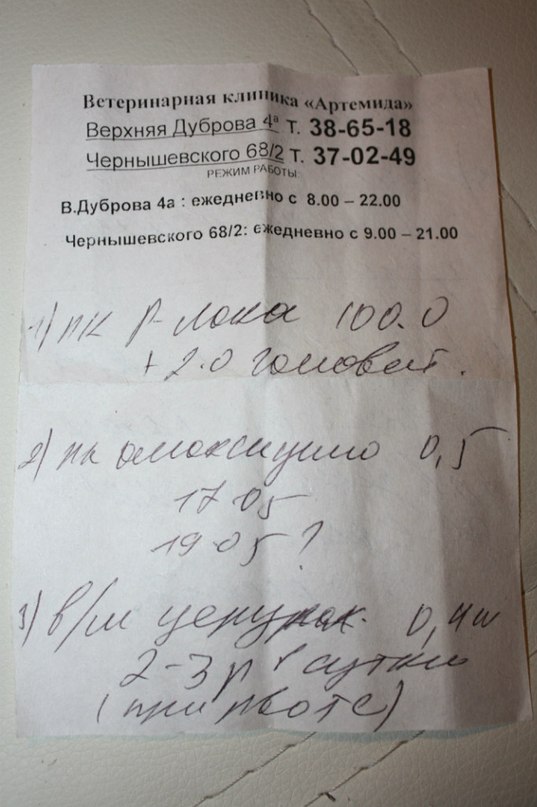 Ветеринарная клиника «Артемида»
Верхняя Дуброва 4ª т. 38-65-18
Чернышевского 68/2 т. 37-02-49
РЕЖИМ РАБОТЫ:
В.Дуброва 4а : ежедневно с 8.00 – 22.00
Чернышевского 68/2: ежедневно с 9.00 – 21.00
1) пк р-Лока 100.0
+ 2.0 гамовит.
2) пк амоксицилло 0,5
17 05
19 05 ?
3) в/м церукал 0,4
2-3 р в сутки
(при рвоте)